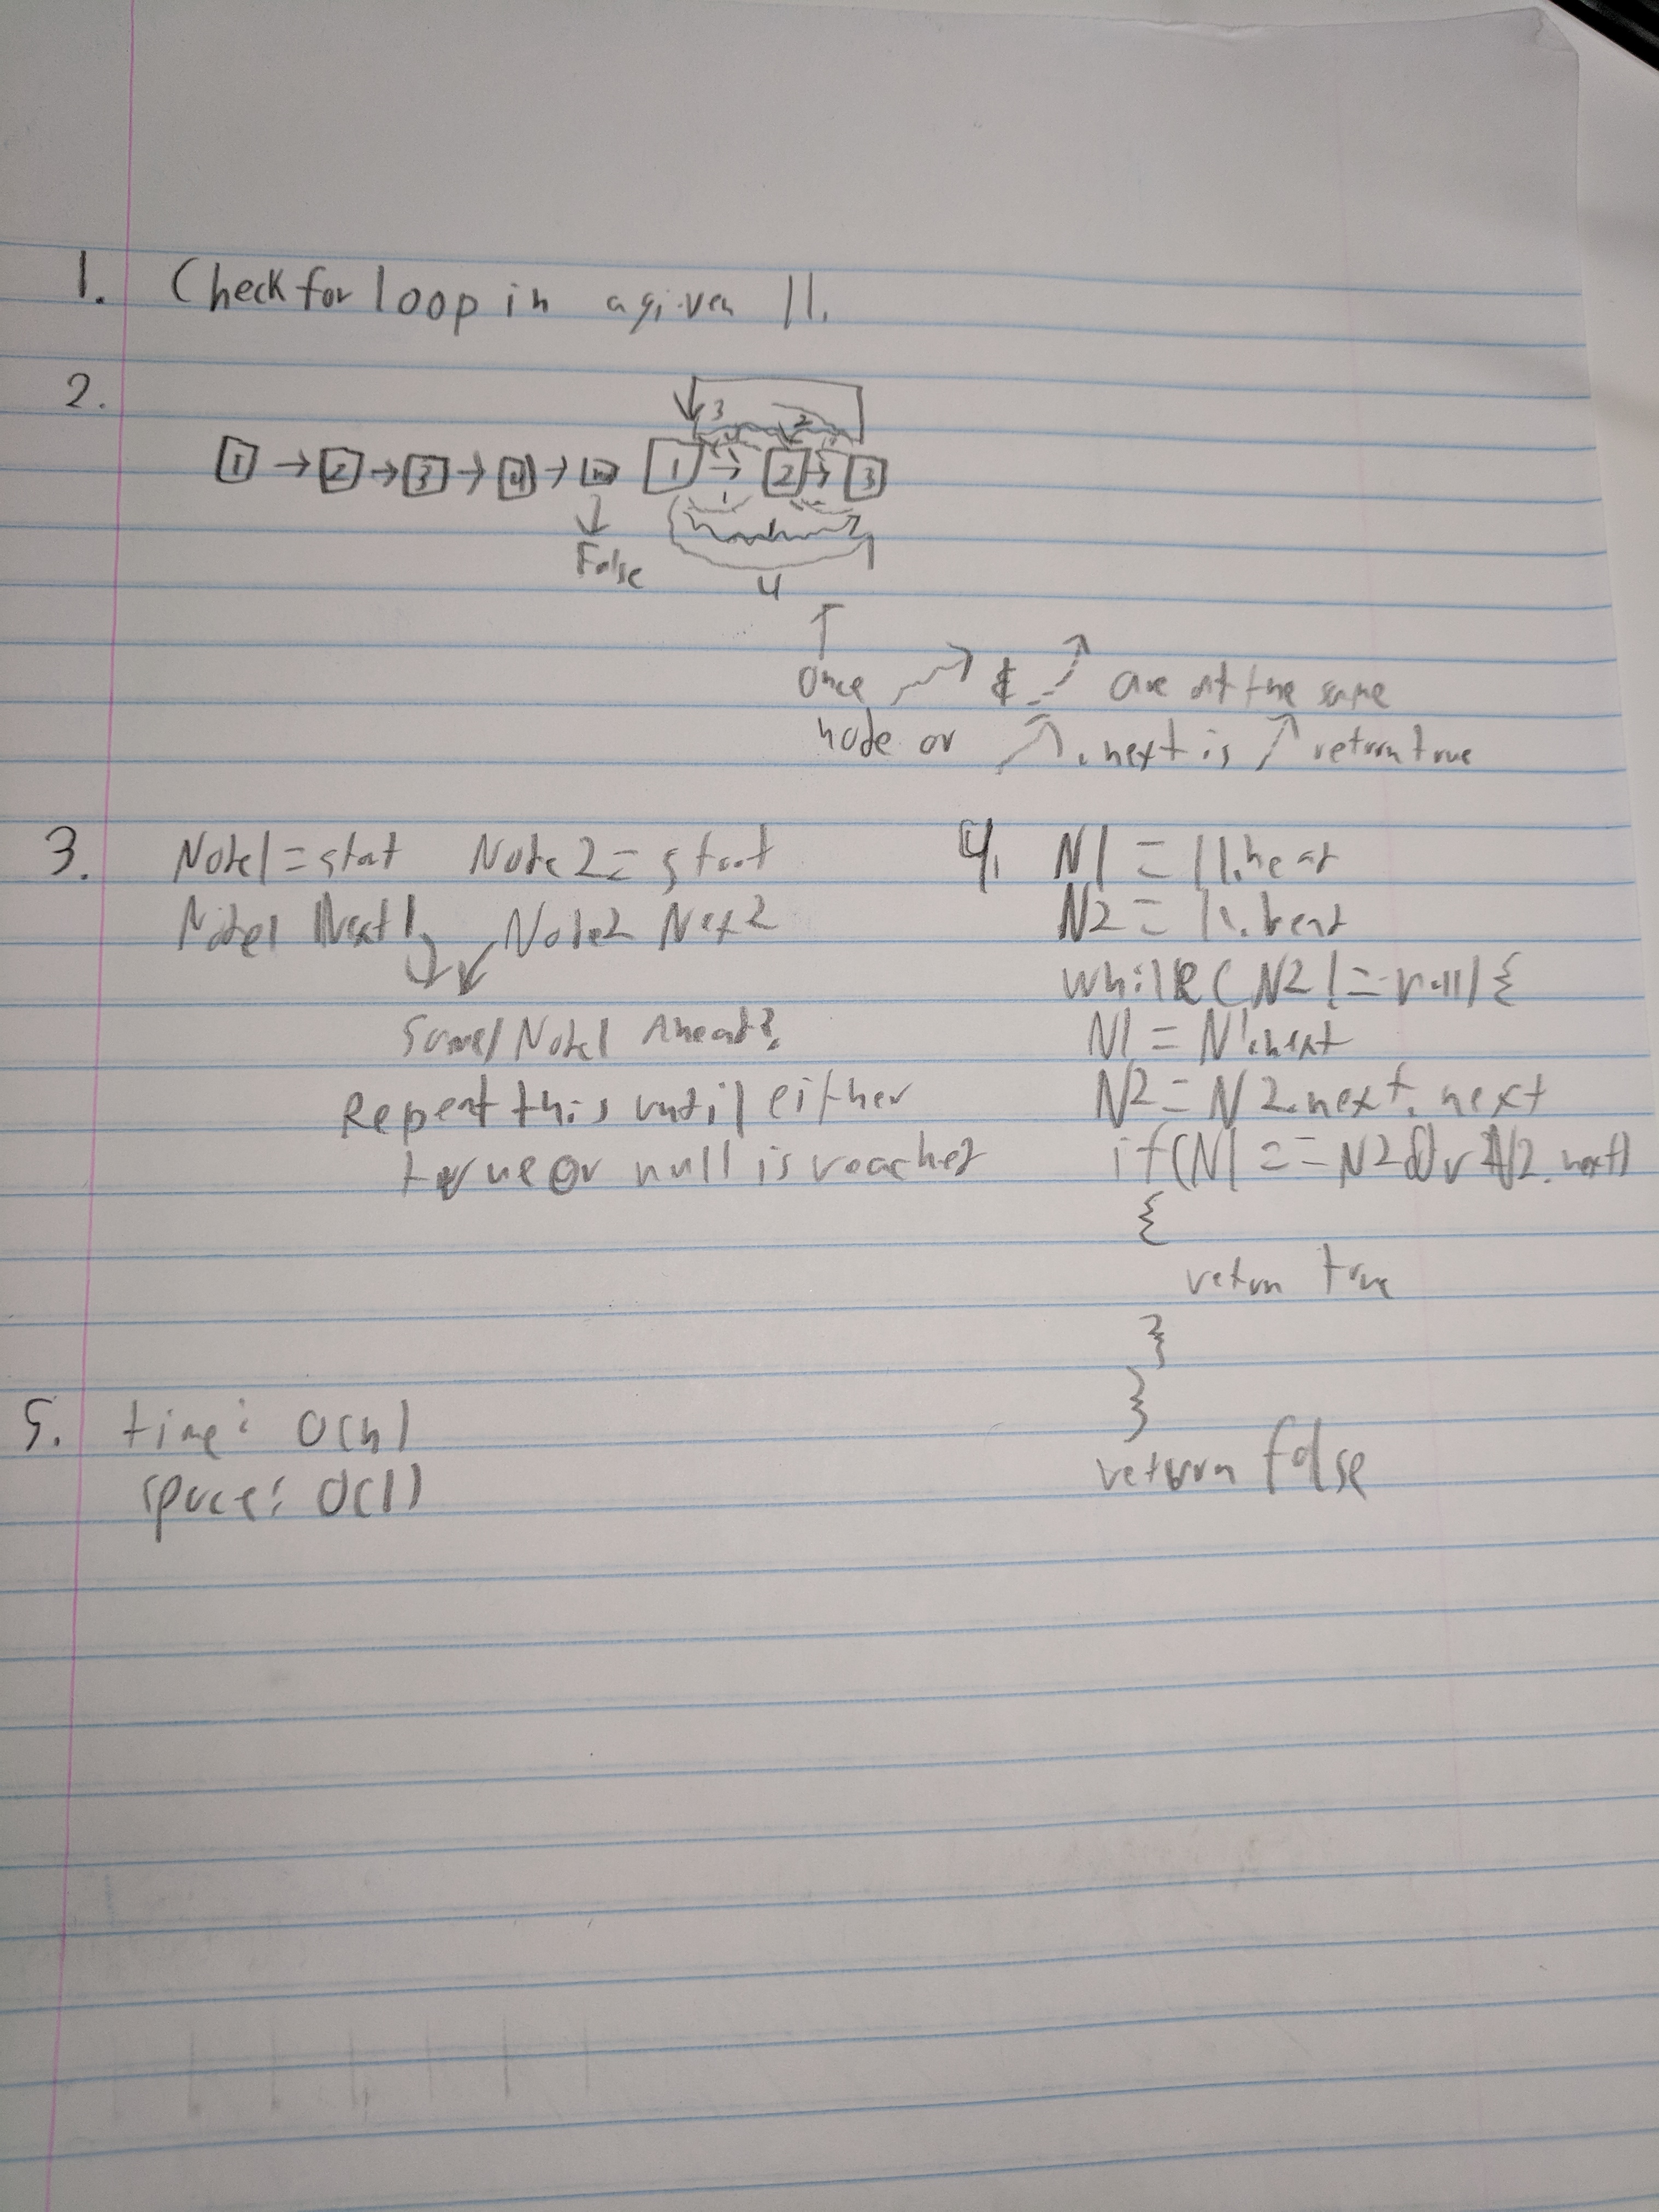 1. Check for loop in a given ll.
2.
3 2
1 → 2 → 3 → 4 → 1 → 2 → 3
1
False
4
Once & are at the same
node or .next is return true
3. Node1 = start Node2 = start
Node1 Next1 Node2 Nex2
Same/Node1 Ahead?
Repeat this until either
true or null is reached
4. N1 = ll.head
N2 = ll.head
while (N2 != null) {
N1 = N1.next
N2 = N2.next.next
if (N1 == N2 Or N2.next)
{
return true
}
}
return false
5. time: O(n)
space: O(1)